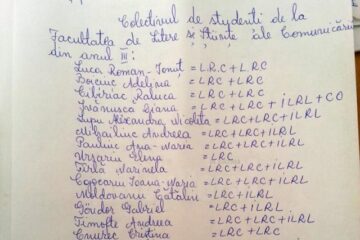 Colectivul de studenti de la
Facultatea de Litere si Științe ale Comunicării
din anul III:
Luca Roman-Ionuț = LRC + LRC
Bociuc Adelina = LRC + LRC
Cibiriac Raluca = LRC + LRC
Ivănușca Diana = LRC + LRC + iLRL + CO
Lupu Alexandra Nicoleta = LRC + LRC + iLRL
Mihailiuc Andreea = LRC + LRC + iLRL
Pauliuc Ana-Maria = LRC + LRC + iLRL
Ursariu Elena = LRC
Tîrlă Marinela = LRC + LRC + iLRL
Cojocariu Ioana-Maria = LRC + LRC + iLRL
Moldovanu Cătălin = LRC + iLRL
Göndör Gabriel = LRC + LRC + iLRL
Timofte Andreea = LRC + LRC + iLRL
Cristina = LRC + LRC